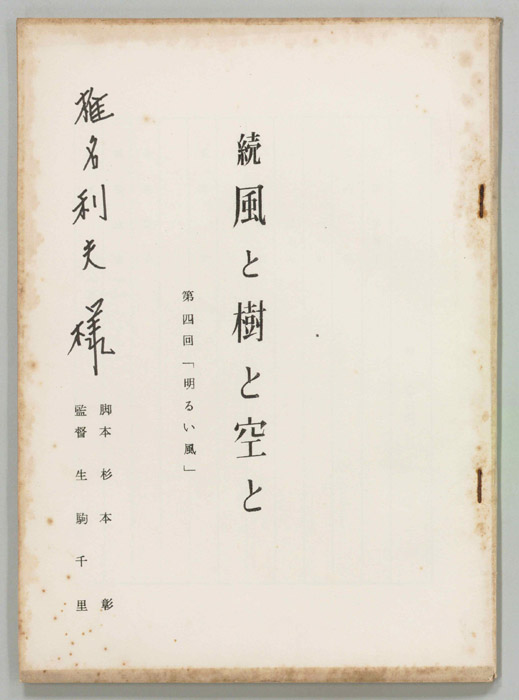 続 風と樹と空と
第四回「明るい風」
脚本 杉本 彰
監督 生駒千里
椎名利夫 様